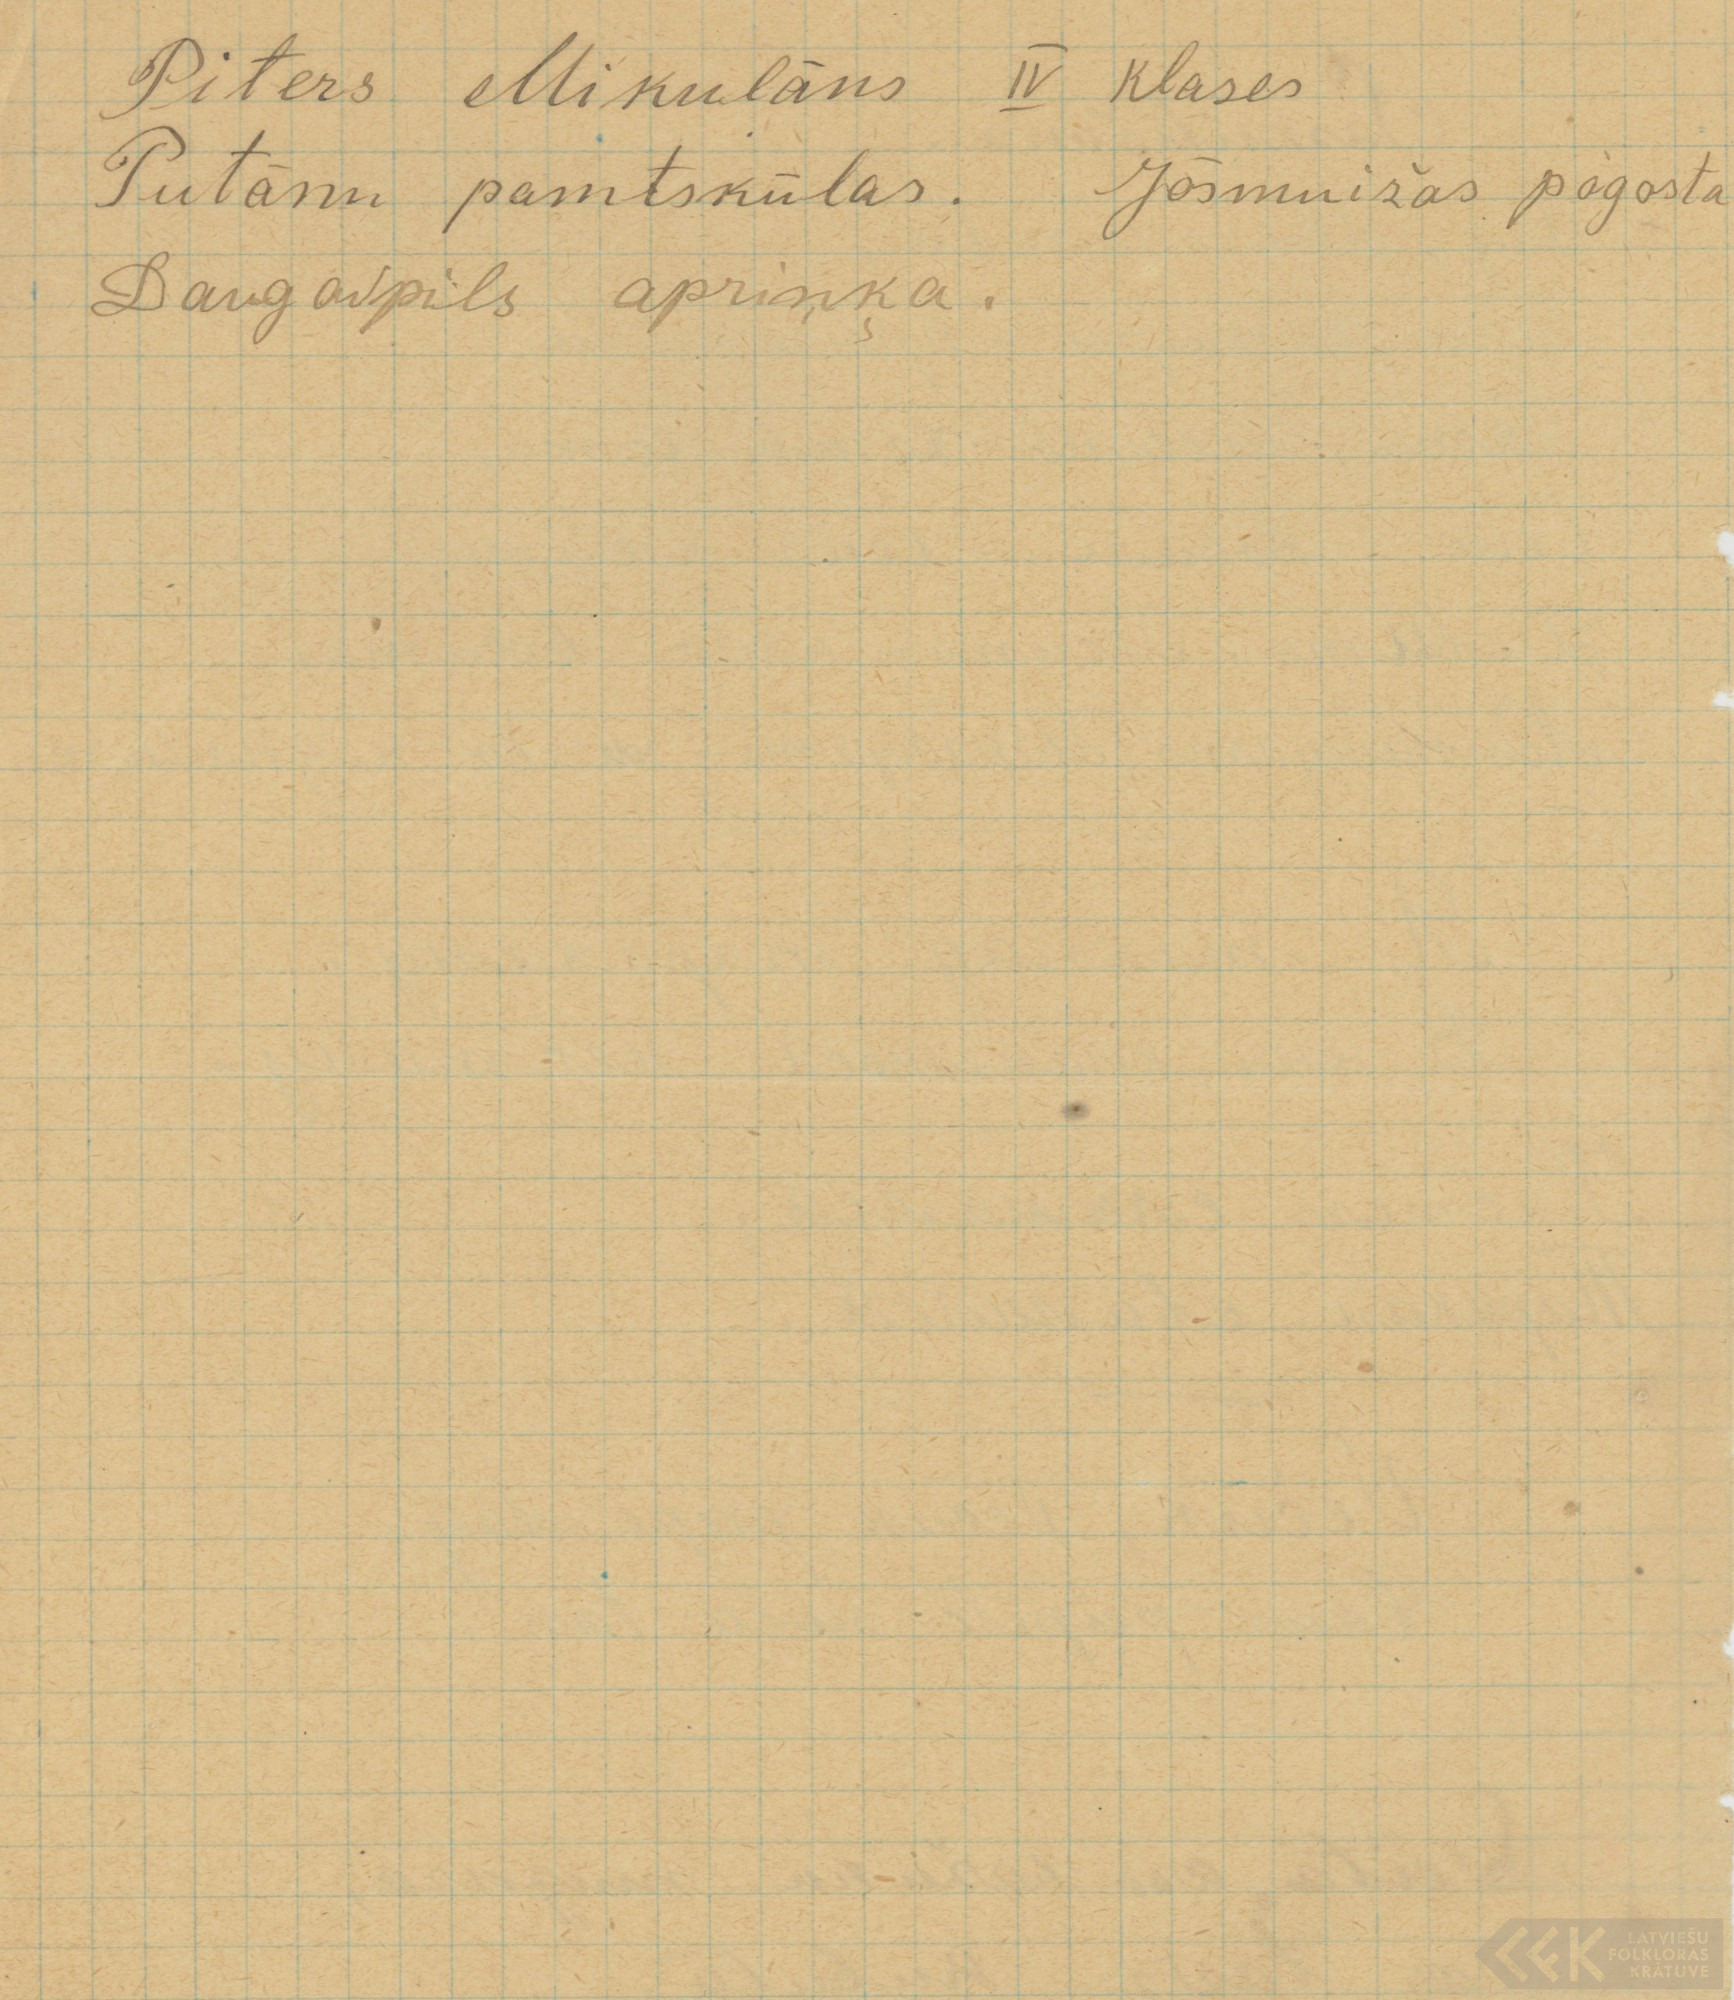 Piters Mikulāns IV klases
Putānu pamtskūlas. Jōsmuižas pogosta
Daugavpils apriņķa.
LATVIEŠU
FOLKLORAS
KRĀTUVE